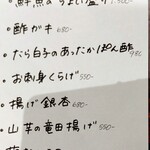 鮮魚のちょい盛り 1,300-
・酢ガキ 680-
・たら白子のあったかポン酢 980-
・お刺身くらげ 550-
・揚げ銀杏 680-
・山芋の竜田揚げ 550-